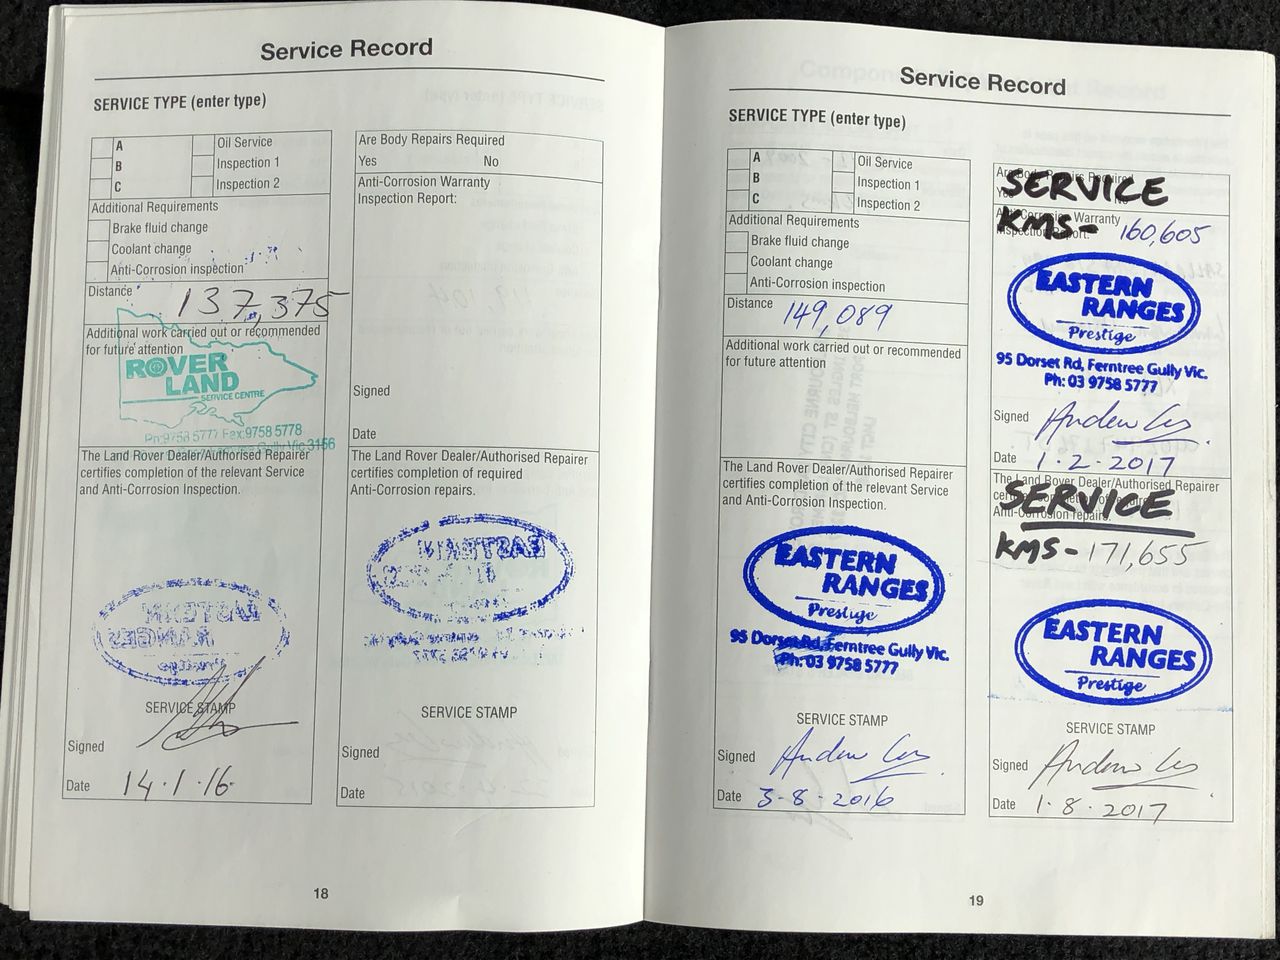 Service Record
SERVICE TYPE (enter type)
A
B
C
Oil Service
Inspection 1
Inspection 2
Additional Requirements
Brake fluid change
Coolant change
Anti-Corrosion inspection
Distance 137,375
Additional work carried out or recommended
for future attention
ROVER
LAND
SERVICE CENTRE
Ph:9758 5777 Fax:9758 5778
Gully Vic 3156
The Land Rover Dealer/Authorised Repairer
certifies completion of the relevant Service
and Anti-Corrosion Inspection.
SERVICE STAMP
Signed
Date 14·1·16
Are Body Repairs Required
Yes No
Anti-Corrosion Warranty
Inspection Report:
Signed
Date
The Land Rover Dealer/Authorised Repairer
certifies completion of required
Anti-Corrosion repairs.
SERVICE STAMP
Signed
Date
18
Service Record
SERVICE TYPE (enter type)
A
B
C
Oil Service
Inspection 1
Inspection 2
Additional Requirements
Brake fluid change
Coolant change
Anti-Corrosion inspection
Distance 149,089
Additional work carried out or recommended
for future attention
The Land Rover Dealer/Authorised Repairer
certifies completion of the relevant Service
and Anti-Corrosion Inspection.
EASTERN
RANGES
Prestige
95 Dorset Rd, Ferntree Gully Vic.
Ph: 03 9758 5777
SERVICE STAMP
Signed
Date 3-8-2016
Are Body Repairs Required
SERVICE
Yes No
Anti-Corrosion Warranty
KMS- 160,605
Inspection Report:
EASTERN
RANGES
Prestige
95 Dorset Rd, Ferntree Gully Vic.
Ph: 03 9758 5777
Signed
Date 1·2·2017
The Land Rover Dealer/Authorised Repairer
SERVICE
certifies completion of required
Anti-Corrosion repairs.
KMS- 171,655
EASTERN
RANGES
Prestige
SERVICE STAMP
Signed
Date 1·8·2017
19